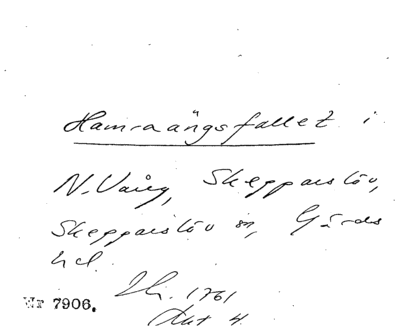 Hamraängsfallet i
N. Vång, Skepparslöv,
Skepparslöv sn, Gärds
hd.
Nr 7906. 1761
Akt 4